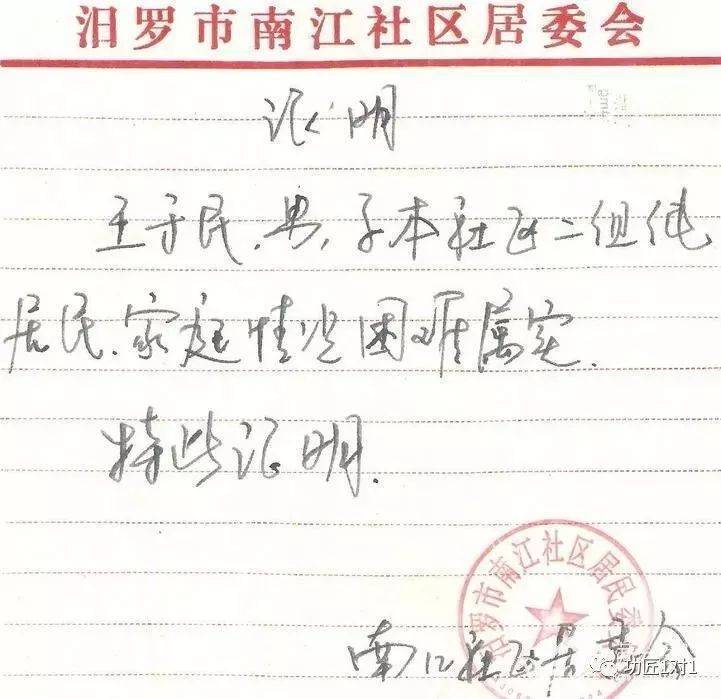 汨罗市南江社区居委会
证明
王于民、男,子本社区二组纯
居民、家庭情况困难属实.
特此证明.
汨罗市南江社区居民委
南江社区居委会
功匠1对1